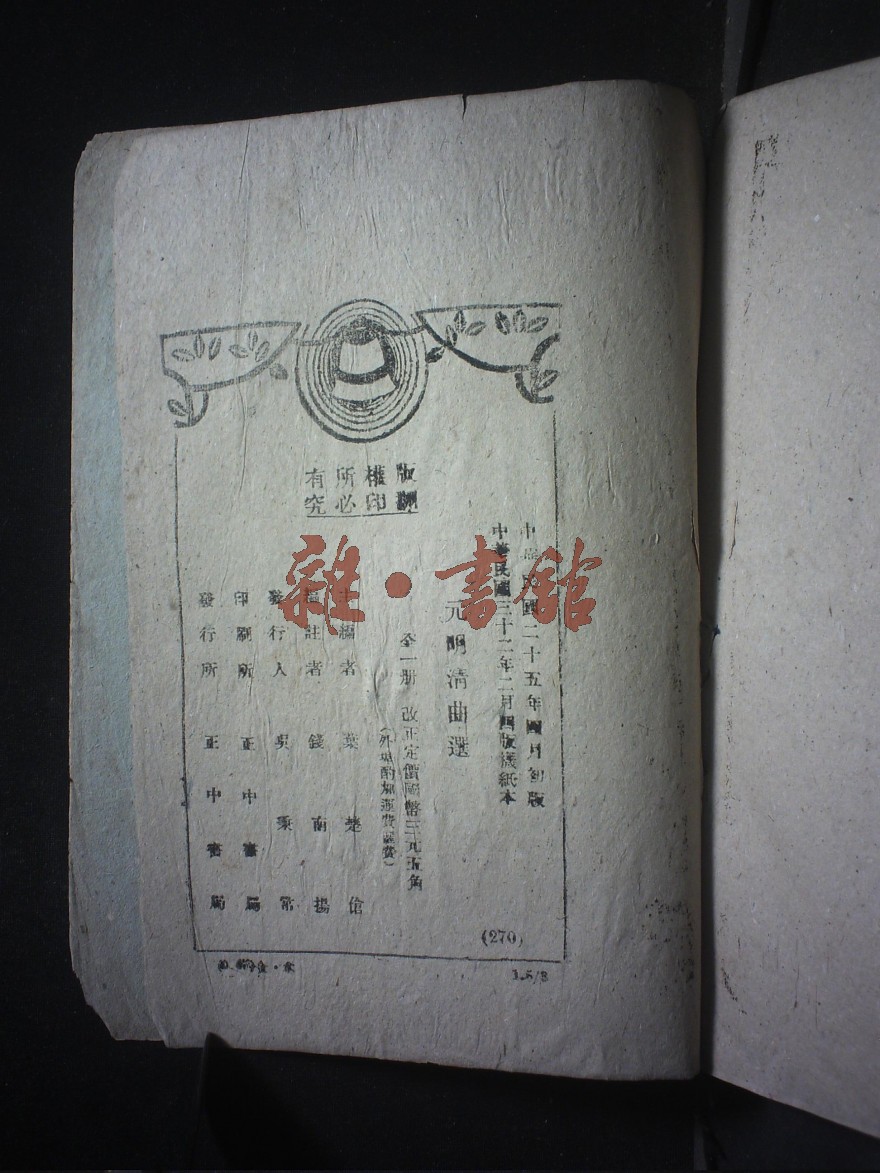 版權所有
翻印必究
中華民國二十五年四月初版
中華民國三十二年二月四版渝紙本
元明清曲選
全一册 改正定價國幣三元五角
(外埠酌加運費匯費)
主編者 葉楚傖
編註者 錢南揚
發行人 吳秉常
印刷所 正中書局
發行所 正中書局
(270)
1.5/8
雜·書館